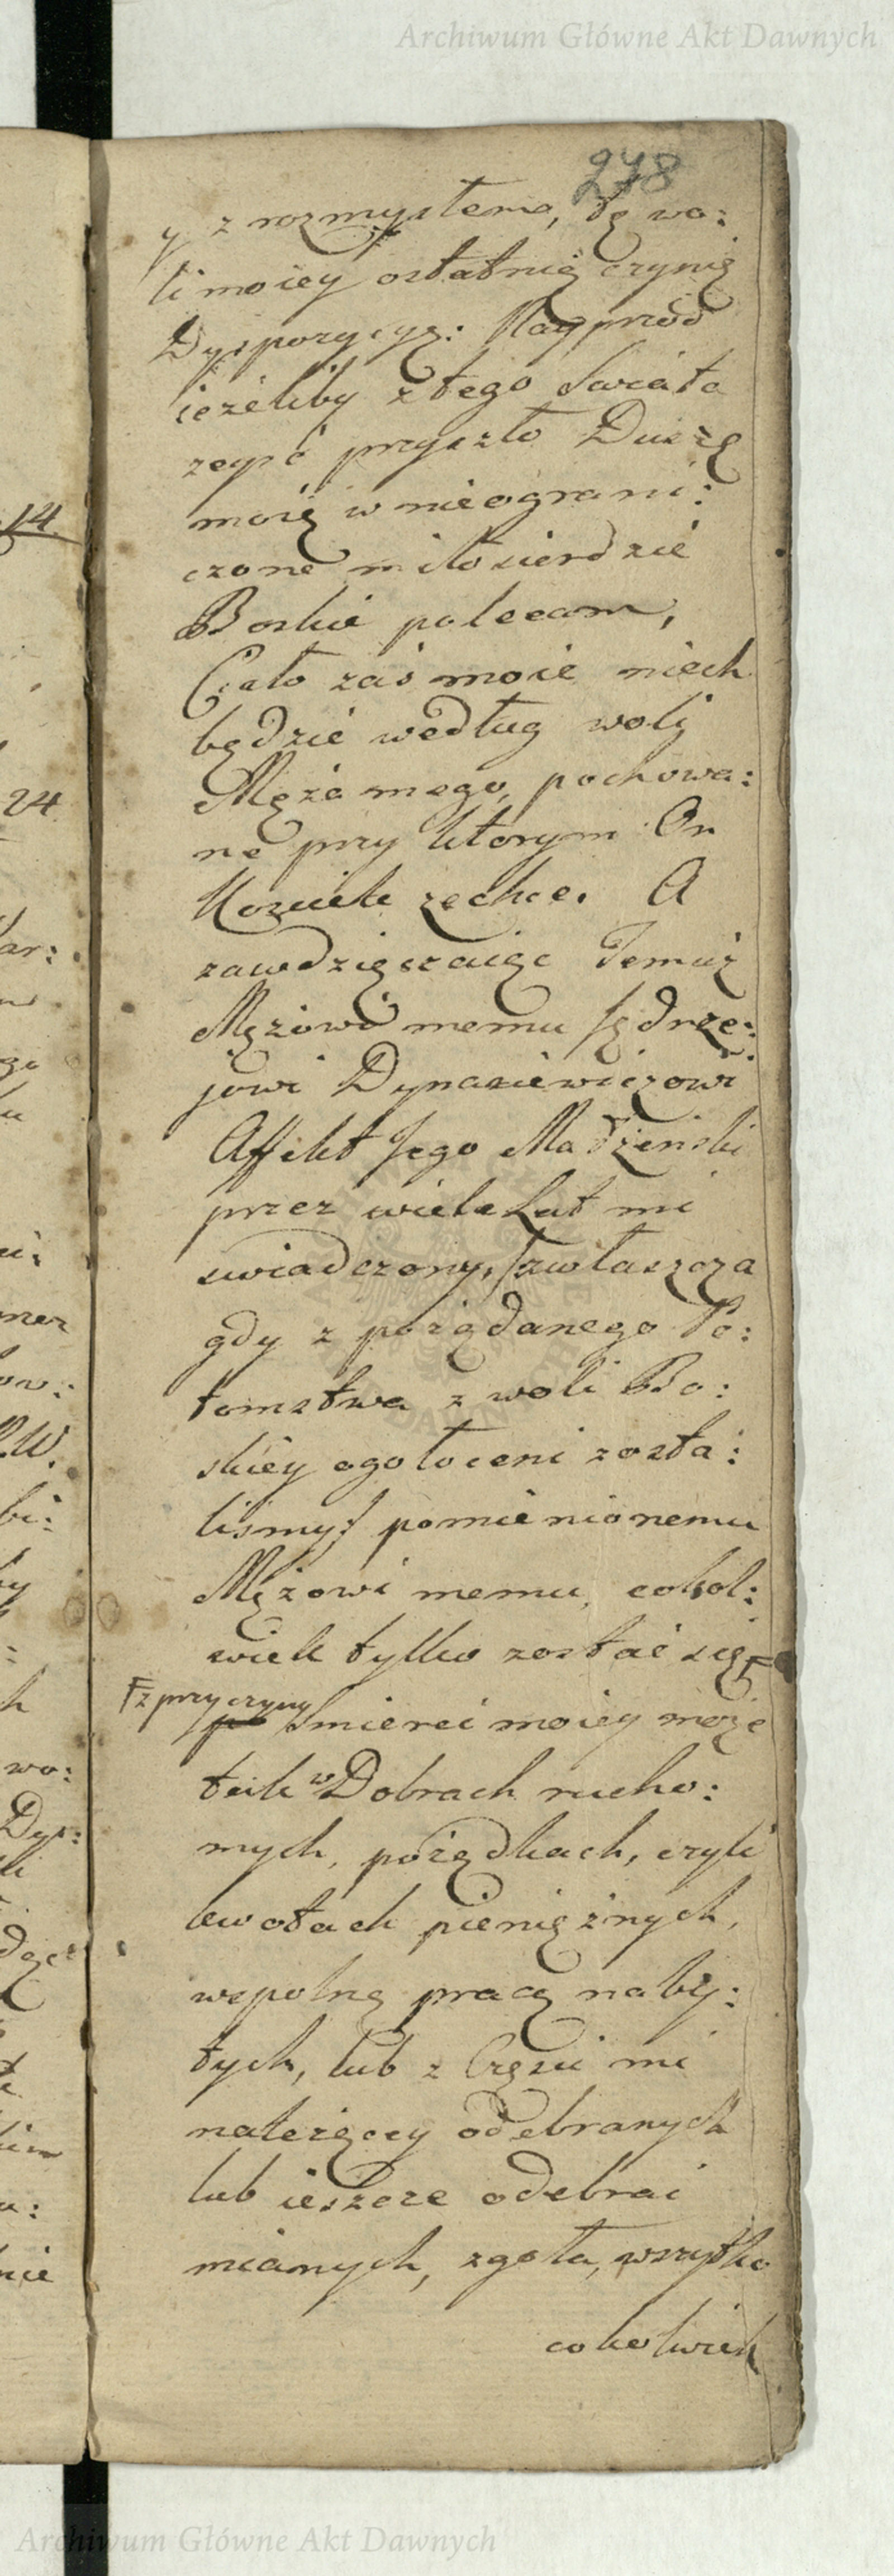 Archiwum Główne Akt Dawnych
278
y z rozmysłema, tę wo:
li moiey ostatnię czynię
Dyspozycyę: Nayprzod
ieżeliby z tego Swiata
zeyść przyszło Duszę
moię w nieograni:
czone miłosierdzie
Boskie polecam,
Ciało zaś moie niech
będzie według woli
Męża mego, pochowa:
ne przy ktorym On
Kosciele zechce. A
zawdzięczaiąc Temuż
Mężowi memu Jędrze:
jowi Dynasiewiczowi
Affekt Jego Małżeński
przez wiele Lat mi
swiadczony, /zwłaszcza
gdy z pożądanego Po:
tomstwa z woli Bo:
skiey ogołoceni zosta:
liśmy/ pomienionemu
Mężowi memu, cokol:
wiek tylko zostać się
z przyczyny
po Smierci moiey może
tak w Dobrach rucho:
mych, porządkach, czyli
kwotach pieniężnych,
wspolną pracą naby:
tych, lub z Części mi
należącey odebranych
lub ieszcze odebrać
mianych, zgoła, wszystko
cokolwiek
14
24
ar:
R.W.
bi:
wo:
Dys:
nie
Archiwum Główne Akt Dawnych